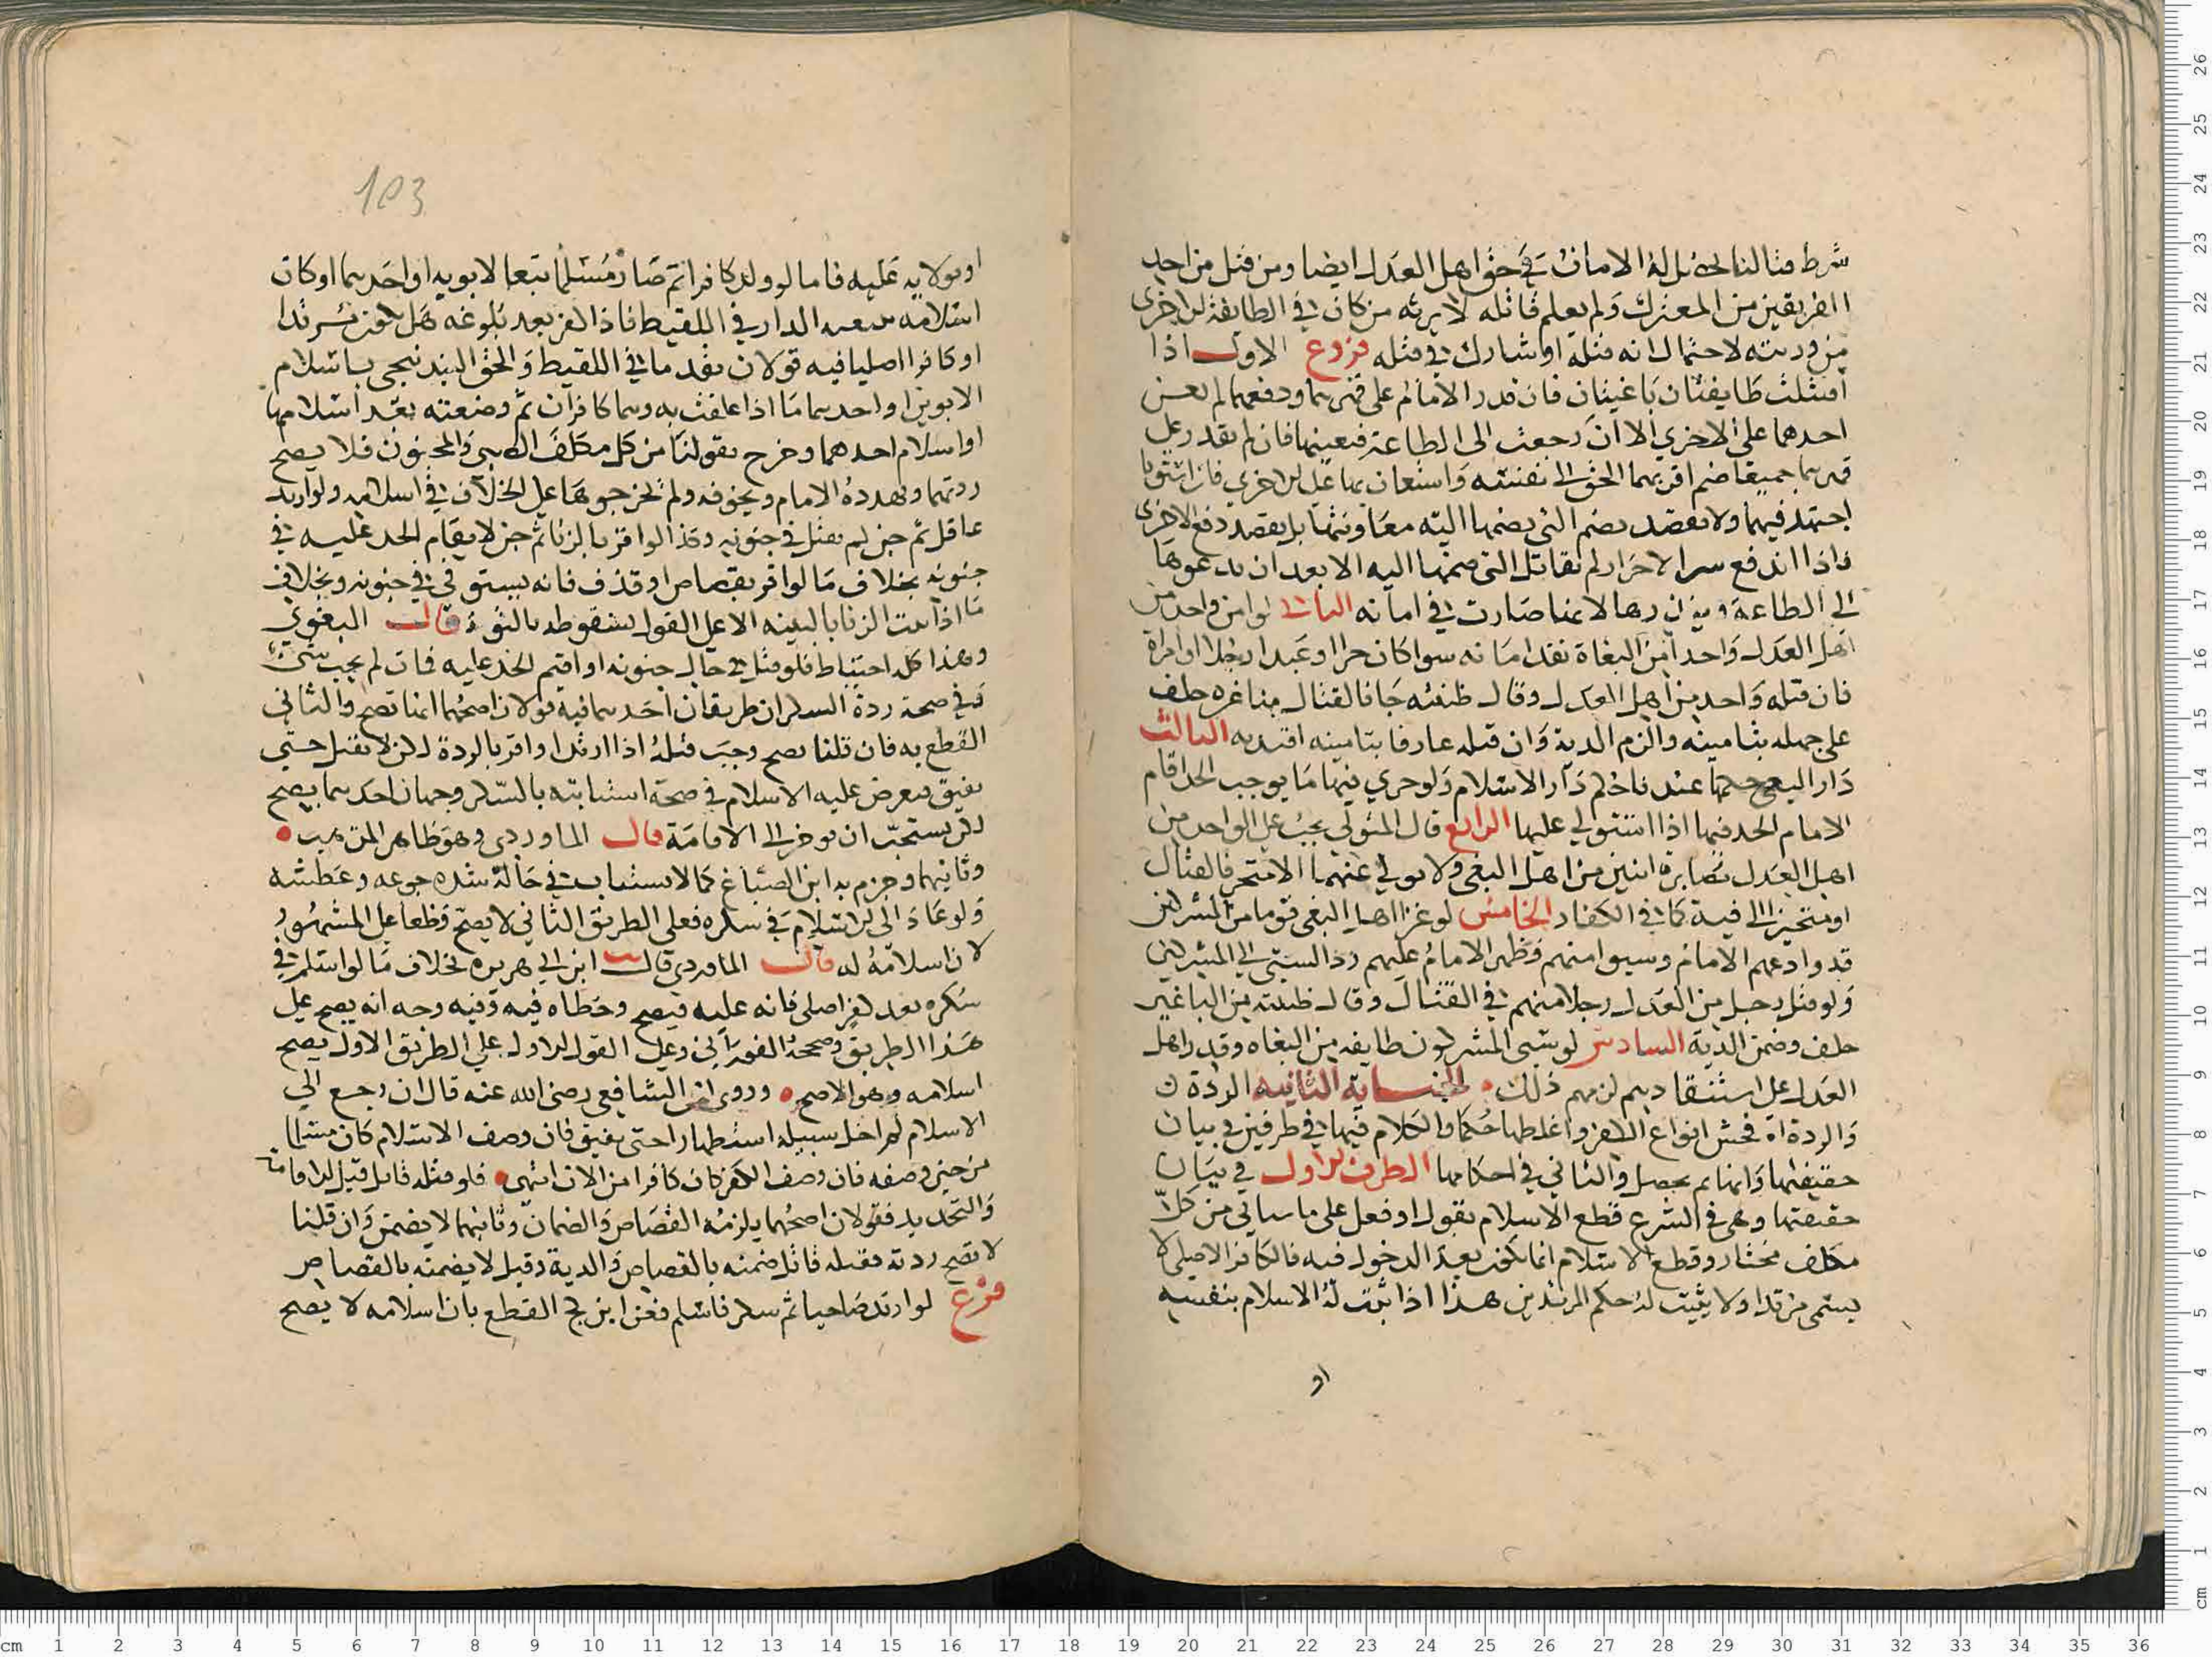 شرط قتالنا الامان في حق اهل العدل ايضا ومن قتل من احد
الفريقين من المعترك ولم يعلم قاتله لا يرثه من كان في الطايفة الاخرى
من ورثته لاحتمال انه قتله او شارك في قتله فروع الاول اذا
اقتتلت طايفتان باغيتان فان قدر الامام على قهرهما ودفعهما لم يعن
احدهما على الاخري الا ان رجعت الى الطاعة فيعينها فان لم يقدر على
قهرهما جميعا ضم اقربهما الى الحق الى نفسه واستعان بها على الاخري فان استويا
اجتهد فيهما ولا يقصد بضم التي يضمها اليه معاونتها بل يقصد دفع الاخرى
فاذا اندفع شر الاخر لم يقاتل التي ضمها اليه الا بعد ان يدعوها
الى الطاعة لانها صارت في امانه الثاني لو امن واحد من
اهل العدل واحدا من البغاة نفذ امانه سوا كان حرا او عبدا رجلا او امراة
فان قتله واحد من اهل العدل وقال ظننته جا فالقتال حلف
على جهله بتامينه والزم الدية وان قتله عارفا بتامينه اقتد به الثالث
دار البغي حكمها عندنا حكم دار الاسلام ولو جري فيها ما يوجب الحد اقام
الامام الحد فيها اذا استولي عليها الرابع قال المتولي يجب على الواحد من
اهل العدل مصابرة اثنين من اهل البغي ولا يولي عنهما الا متحرفا لقتال
او متحيزا الى فية كما في الكفار الخامس لو غزا اهل البغي قوما من المشركين
قد وادعهم الامام وسبوا منهم وظهر الامام عليهم رد السبي الى المشركين
ولو قتل رجل من العدل رجلا منهم في القتال وقال ظننته من الباغين
حلف وضمن الدية السادس لو سبى المشركون طايفه من البغاه وقدر اهل
العدل على استنقاذهم لزمهم ذلك الجنساية الثانيه الردة
والردة افحش انواع الكفر واغلظها حكما والكلام فيها في طرفين في بيان
حقيقتها وانها بم يحصل والثاني في احكامها الطرف الاول في بيان
حقيقتها وهي في الشرع قطع الاسلام بقول او فعل على ما سياتي من كل
مكلف مختار وقطع الاسلام انما يكون بعد الدخول فيه فالكافر الاصلي لا
يسمى مرتدا ولا يثبت له حكم المرتدين هذا اذا ثبت له الاسلام بنفسه
او
103
او بولايه عليه فاما لو ولد كافرا ثم صار مسلما تبعا لابويه او احدهما او كان
اسلامه الدار في اللقيط فاذا كفر بعد بلوغه هل يكون مرتدا
او كافرا اصليا فيه قولان تقدما في اللقيط والحق باسلام
الابوين او احدهما ما اذا علقت به وهما كافران ثم وضعته بعد اسلامهما
او اسلام احدهما وخرج بقولنا من كل مكلف الصبي والمجنون فلا يصح
ردتهما ويهدده الامام ويخوفه ولم يخرجوها على الخلاف في اسلامه ولو ارتد
عاقل ثم جن لم يقتل في جنونه وكذا لو اقر بالزنا ثم جن لا يقام الحد عليه في
جنونه بخلاف ما لو اقر بقصاص او قذف فانه يستوفي في جنونه وبخلاف
ما اذا ثبت الزنا بالبينه الا على القول بسقوطه بالتوبة قال البغوي
وهذا كله احتياط فلو قتل في حال جنونه او اقيم الحد عليه فمات لم يجب شي
وفي صحة ردة السكران طريقان احدهما فيه قولان اصحهما انها تصح والثاني
القطع به فان قلنا تصح وجب قتله اذا ارتد او اقر بالردة لكن لا يقتل حتى
يفيق فيعرض عليه الاسلام في صحة استتابته بالسكر وجهان احدهما يصح
لكن يستحب ان يوخر الى الافاقة قال الماوردي وهو ظاهر المذهب
وثانيهما وجزم به ابن الصباغ كما لا يستتاب في حالة شدة جوعه وعطشه
ولو عاد الى الاسلام في سكره فعلى الطريق الثاني لا يصح قطعا على المشهور
لان اسلامه له قال الماوردي قال ابن ابي هريره بخلاف ما لو اسلم في
سكره بعد كفر اصلي فانه عليه فيصح وخطاه فيه وفيه وجه انه يصح على
هذا الطريق وصححه الفوراني وعلى القول الاول على الطريق الاول يصح
اسلامه وهو الاصح وروي ان الشافعي رضى الله عنه قال ان رجع الى
الاسلام لم اخل سبيله استظهارا حتى يفيق فان وصف الاسلام كان مسلما
من حين وصفه فان وصف الكفر كان كافرا من الان انتهى فلو قتله قاتل قبل الافاقة
والتجديد فقولان اصحهما يلزمه القصاص والضمان وثانيهما لا يضمن وان قلنا
لا تصح ردته فقتله قاتل ضمنه بالقصاص والدية وقيل لا يضمنه بالقصاص
فرع لو ارتد صاحيا ثم سكر فاسلم فعن ابن كج القطع بان اسلامه لا يصح